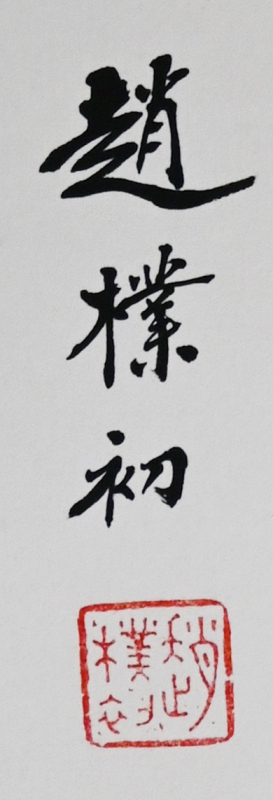 趙樸初
趙
樸初